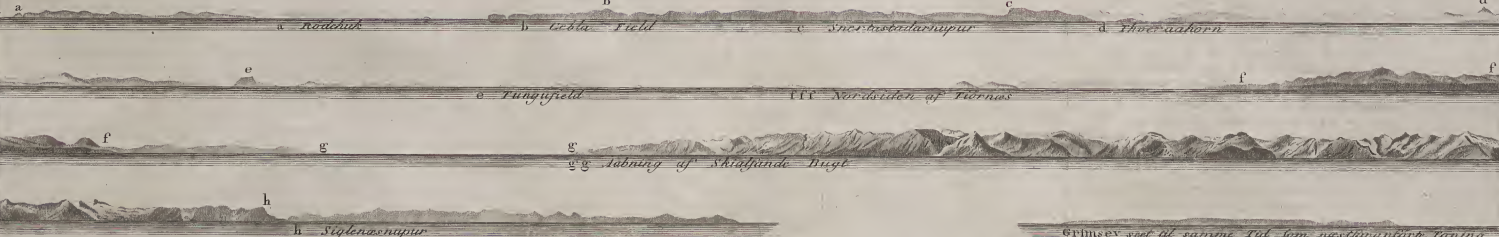 a B c d
a Rodehuk b Gebla Field c Snertastadarnupur d Thveraahorn
e f f
e Tungufield fff Nordsiden af Tiörnæs
f g g
gg Aabning af Skialfande Bugt
h
h Siglenæsnupur Grimsey seet til samme Tid som næstomanförte Toning